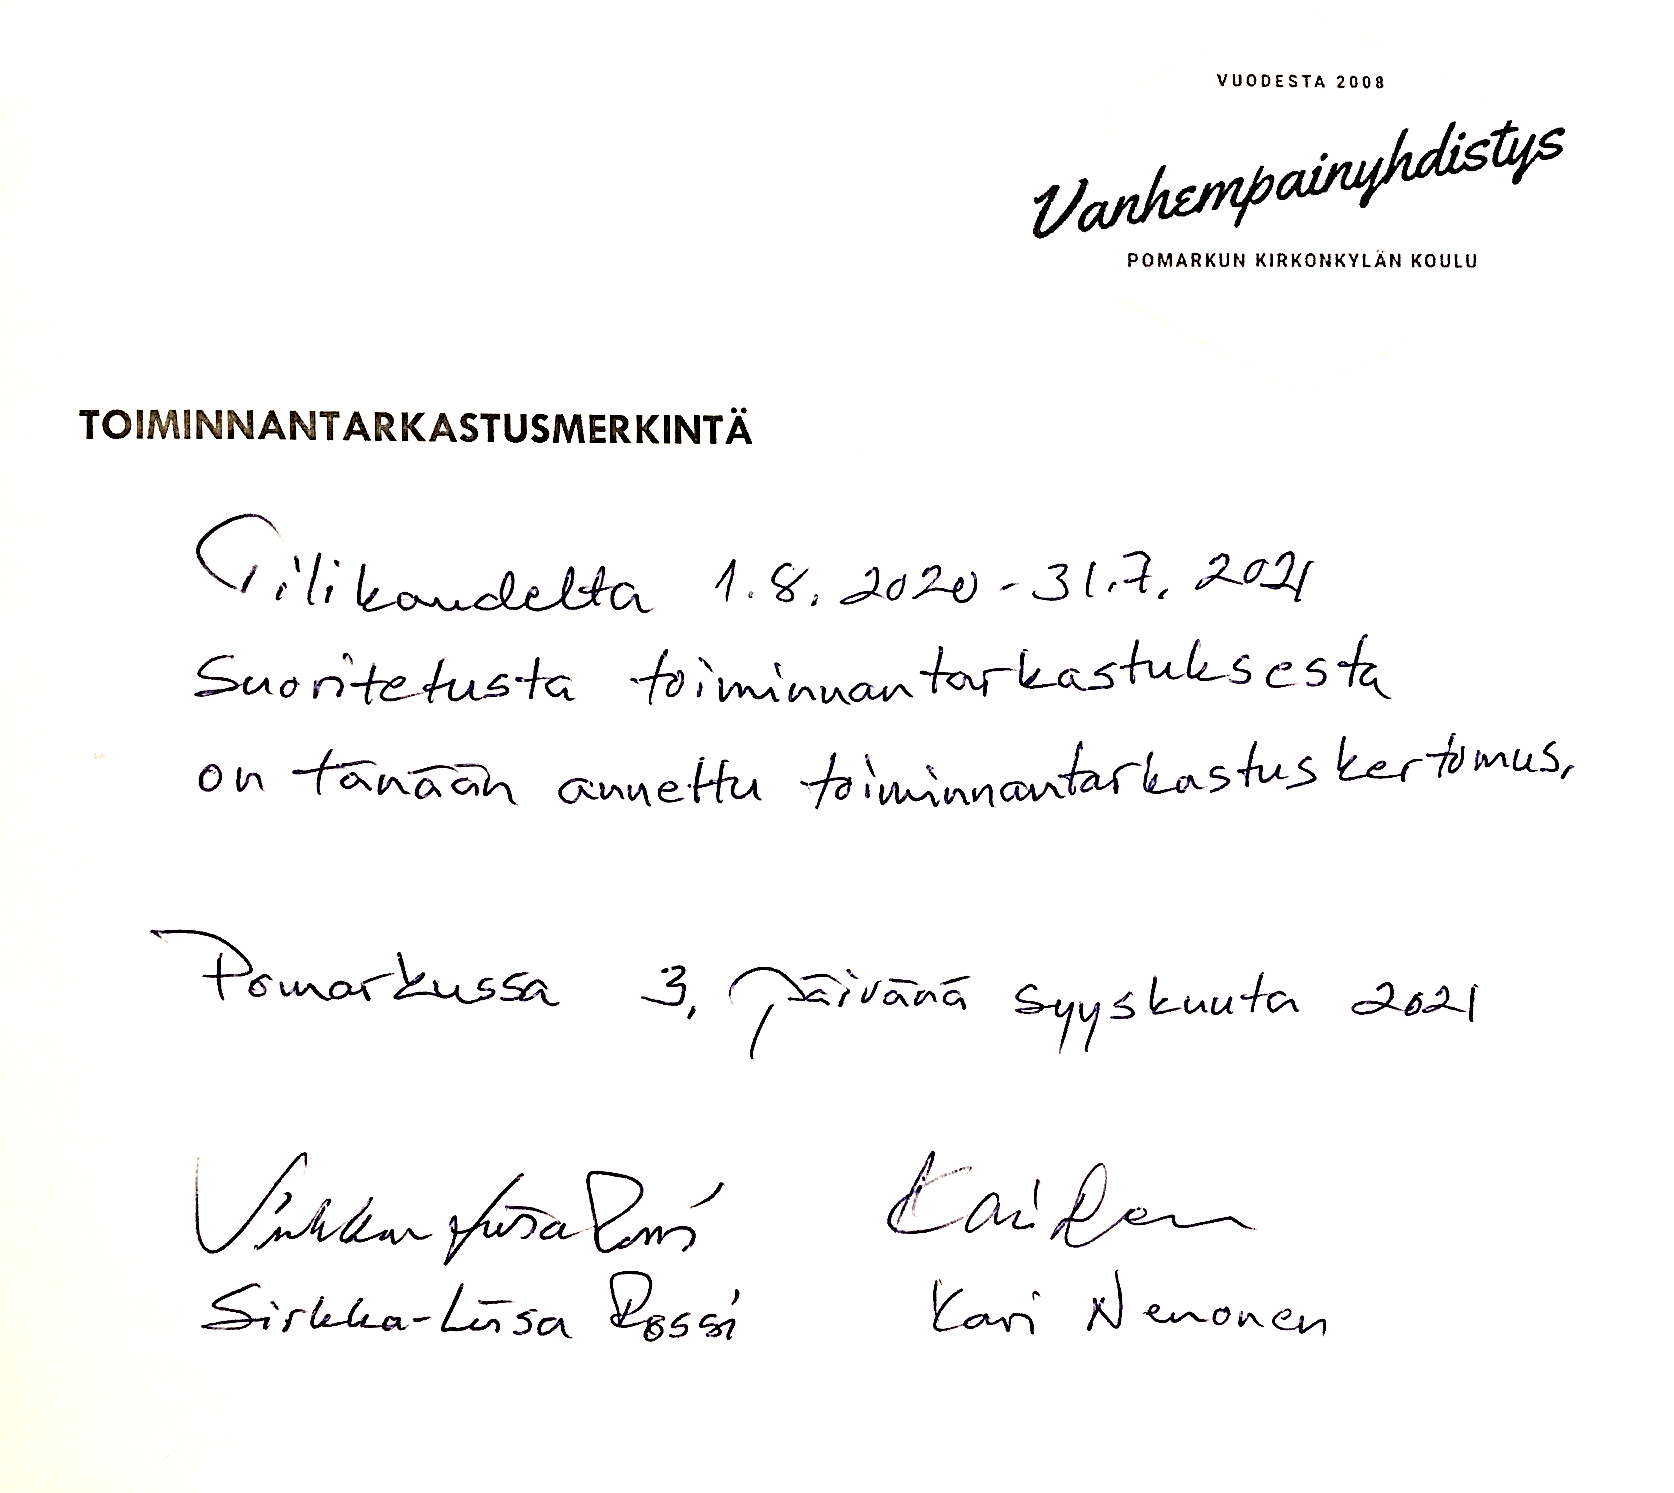 VUODESTA 2008
Vanhempainyhdistys
POMARKUN KIRKONKYLÄN KOULU
TOIMINNANTARKASTUSMERKINTÄ
Tilikaudelta 1.8.2020-31.7.2021
Suoritetusta toiminnantarkastuksesta
on tänään annettu toiminnantarkastuskertomus.
Pomarkussa 3. päivänä syyskuuta 2021
Sirkka-Liisa Rossi Kari
Sirkka-Liisa Rossi Kari Nenonen